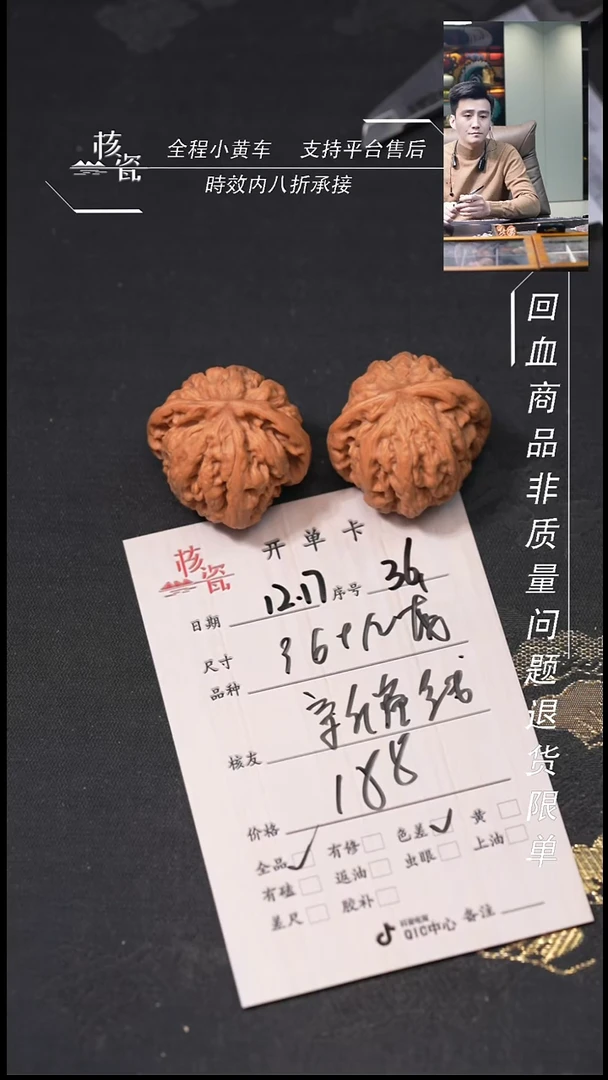 核瓷
全程小黄车 支持平台售后
時效内八折承接
回血商品非质量问题退货限单
核瓷
开单卡
日期 12.17 序号 36
尺寸 36+
品种
核友
188
价格
全品 有修 色差 黄
有磕 返油 虫眼 上油
差尺 胶补
QIC中心 备注